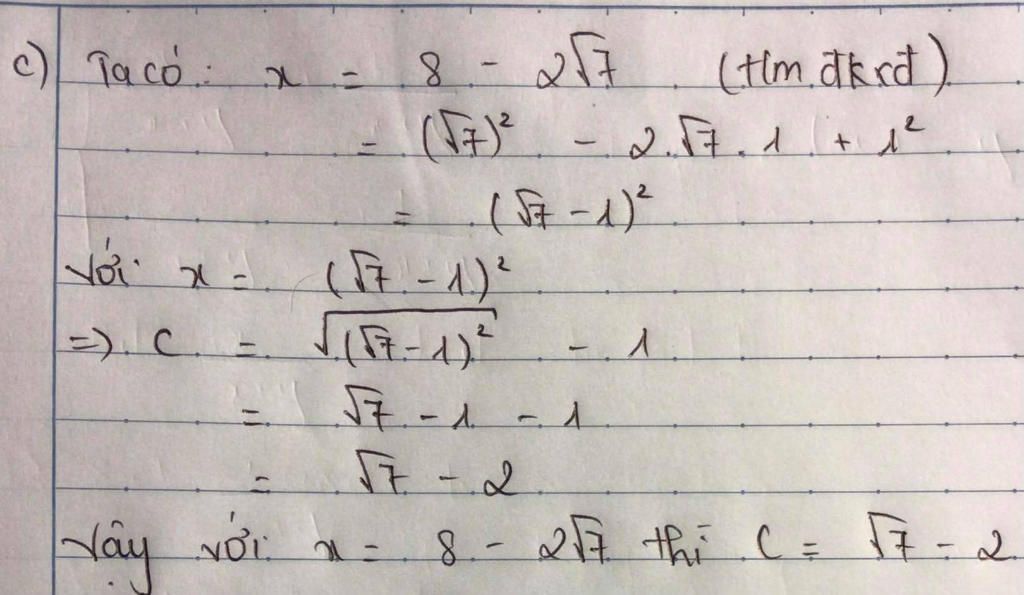 c) Ta có: x = 8 - 2√7 (tlm đkxđ)
= (√7)² - 2.√7.1 + 1²
= (√7 - 1)²
Với x = (√7 - 1)²
=> C = √(√7 - 1)² - 1
= √7 - 1 - 1
= √7 - 2
Vậy với x = 8 - 2√7 thì C = √7 - 2